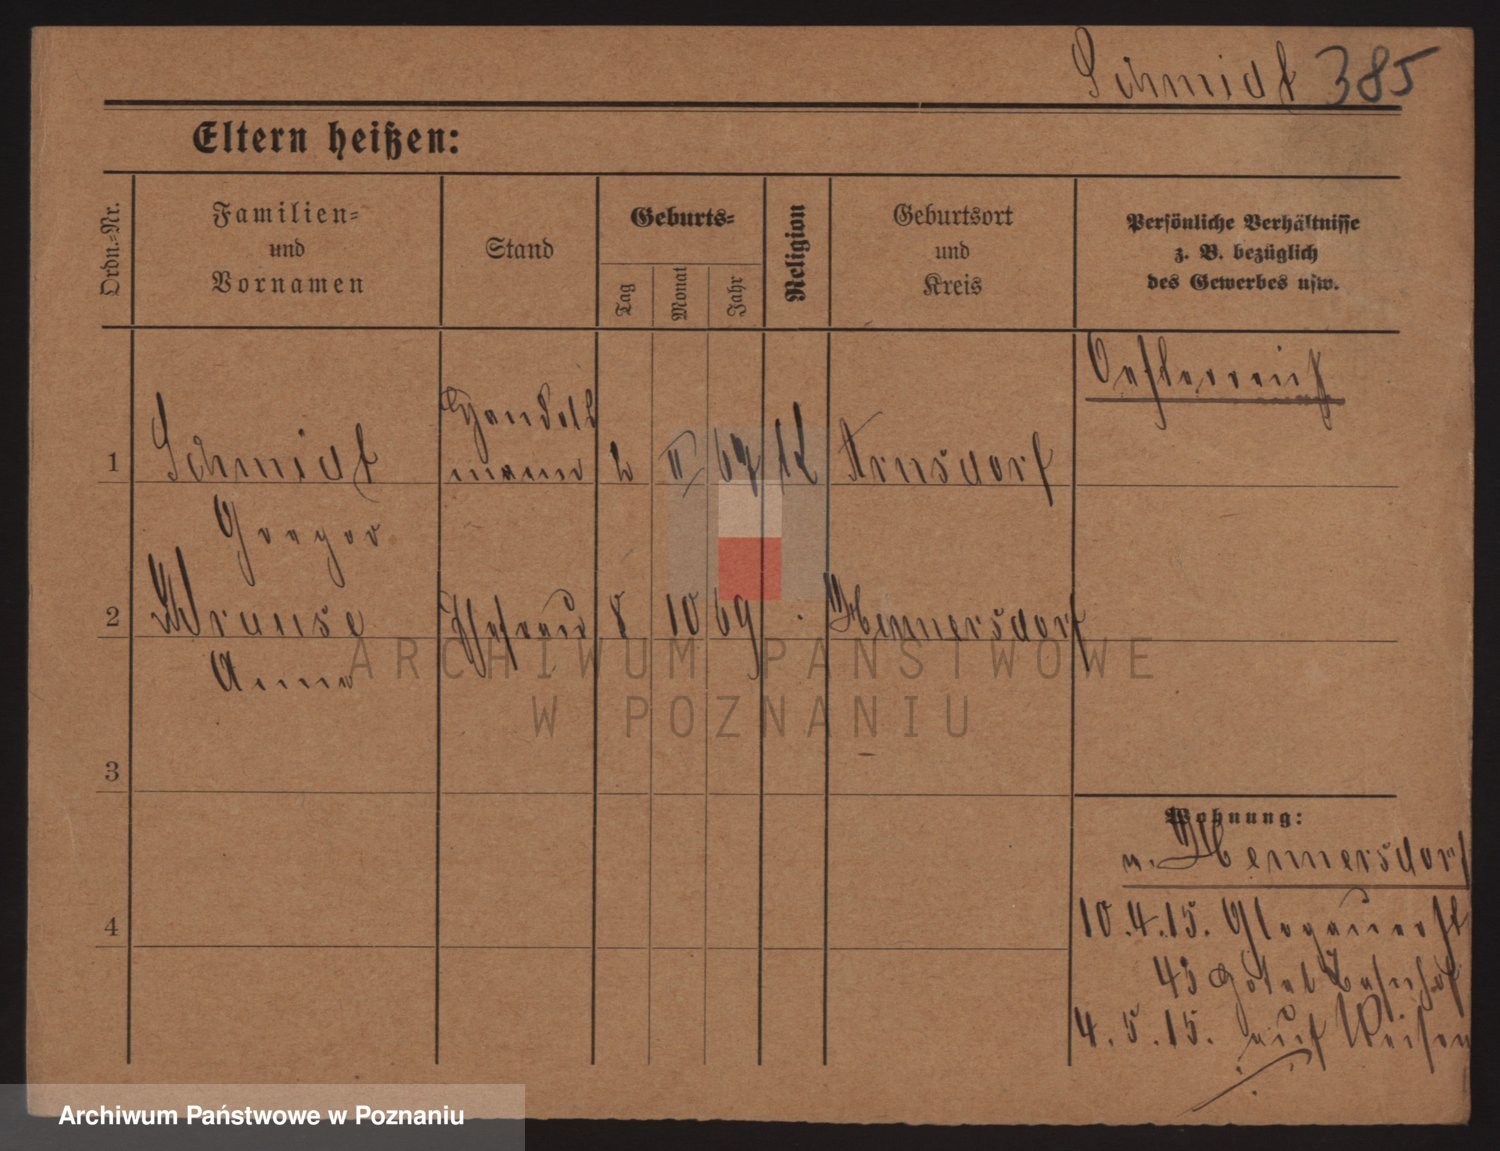 Schmidt 385
Eltern heißen:
Ordn.-Nr.
Familien-
und
Vornamen
Stand
Geburts-
Tag
Monat
Jahr
Religion
Geburtsort
und
Kreis
Persönliche Verhältnisse
z. B. bezüglich
des Gewerbes usw.
Oesterreich
1 Schmidt Handels
mann 2 II 67 k Arnsdorf
Gregor
2 Krause Ehefrau 8 10 69 Hennersdorf
Anna
3
4
Wohnung:
v. Hennersdorf
10.4.15. Glogauerst
43 Hotel Bahnhof
4.5.15. auf Reisen
ARCHIWUM PAŃSTWOWE
W POZNANIU
Archiwum Państwowe w Poznaniu